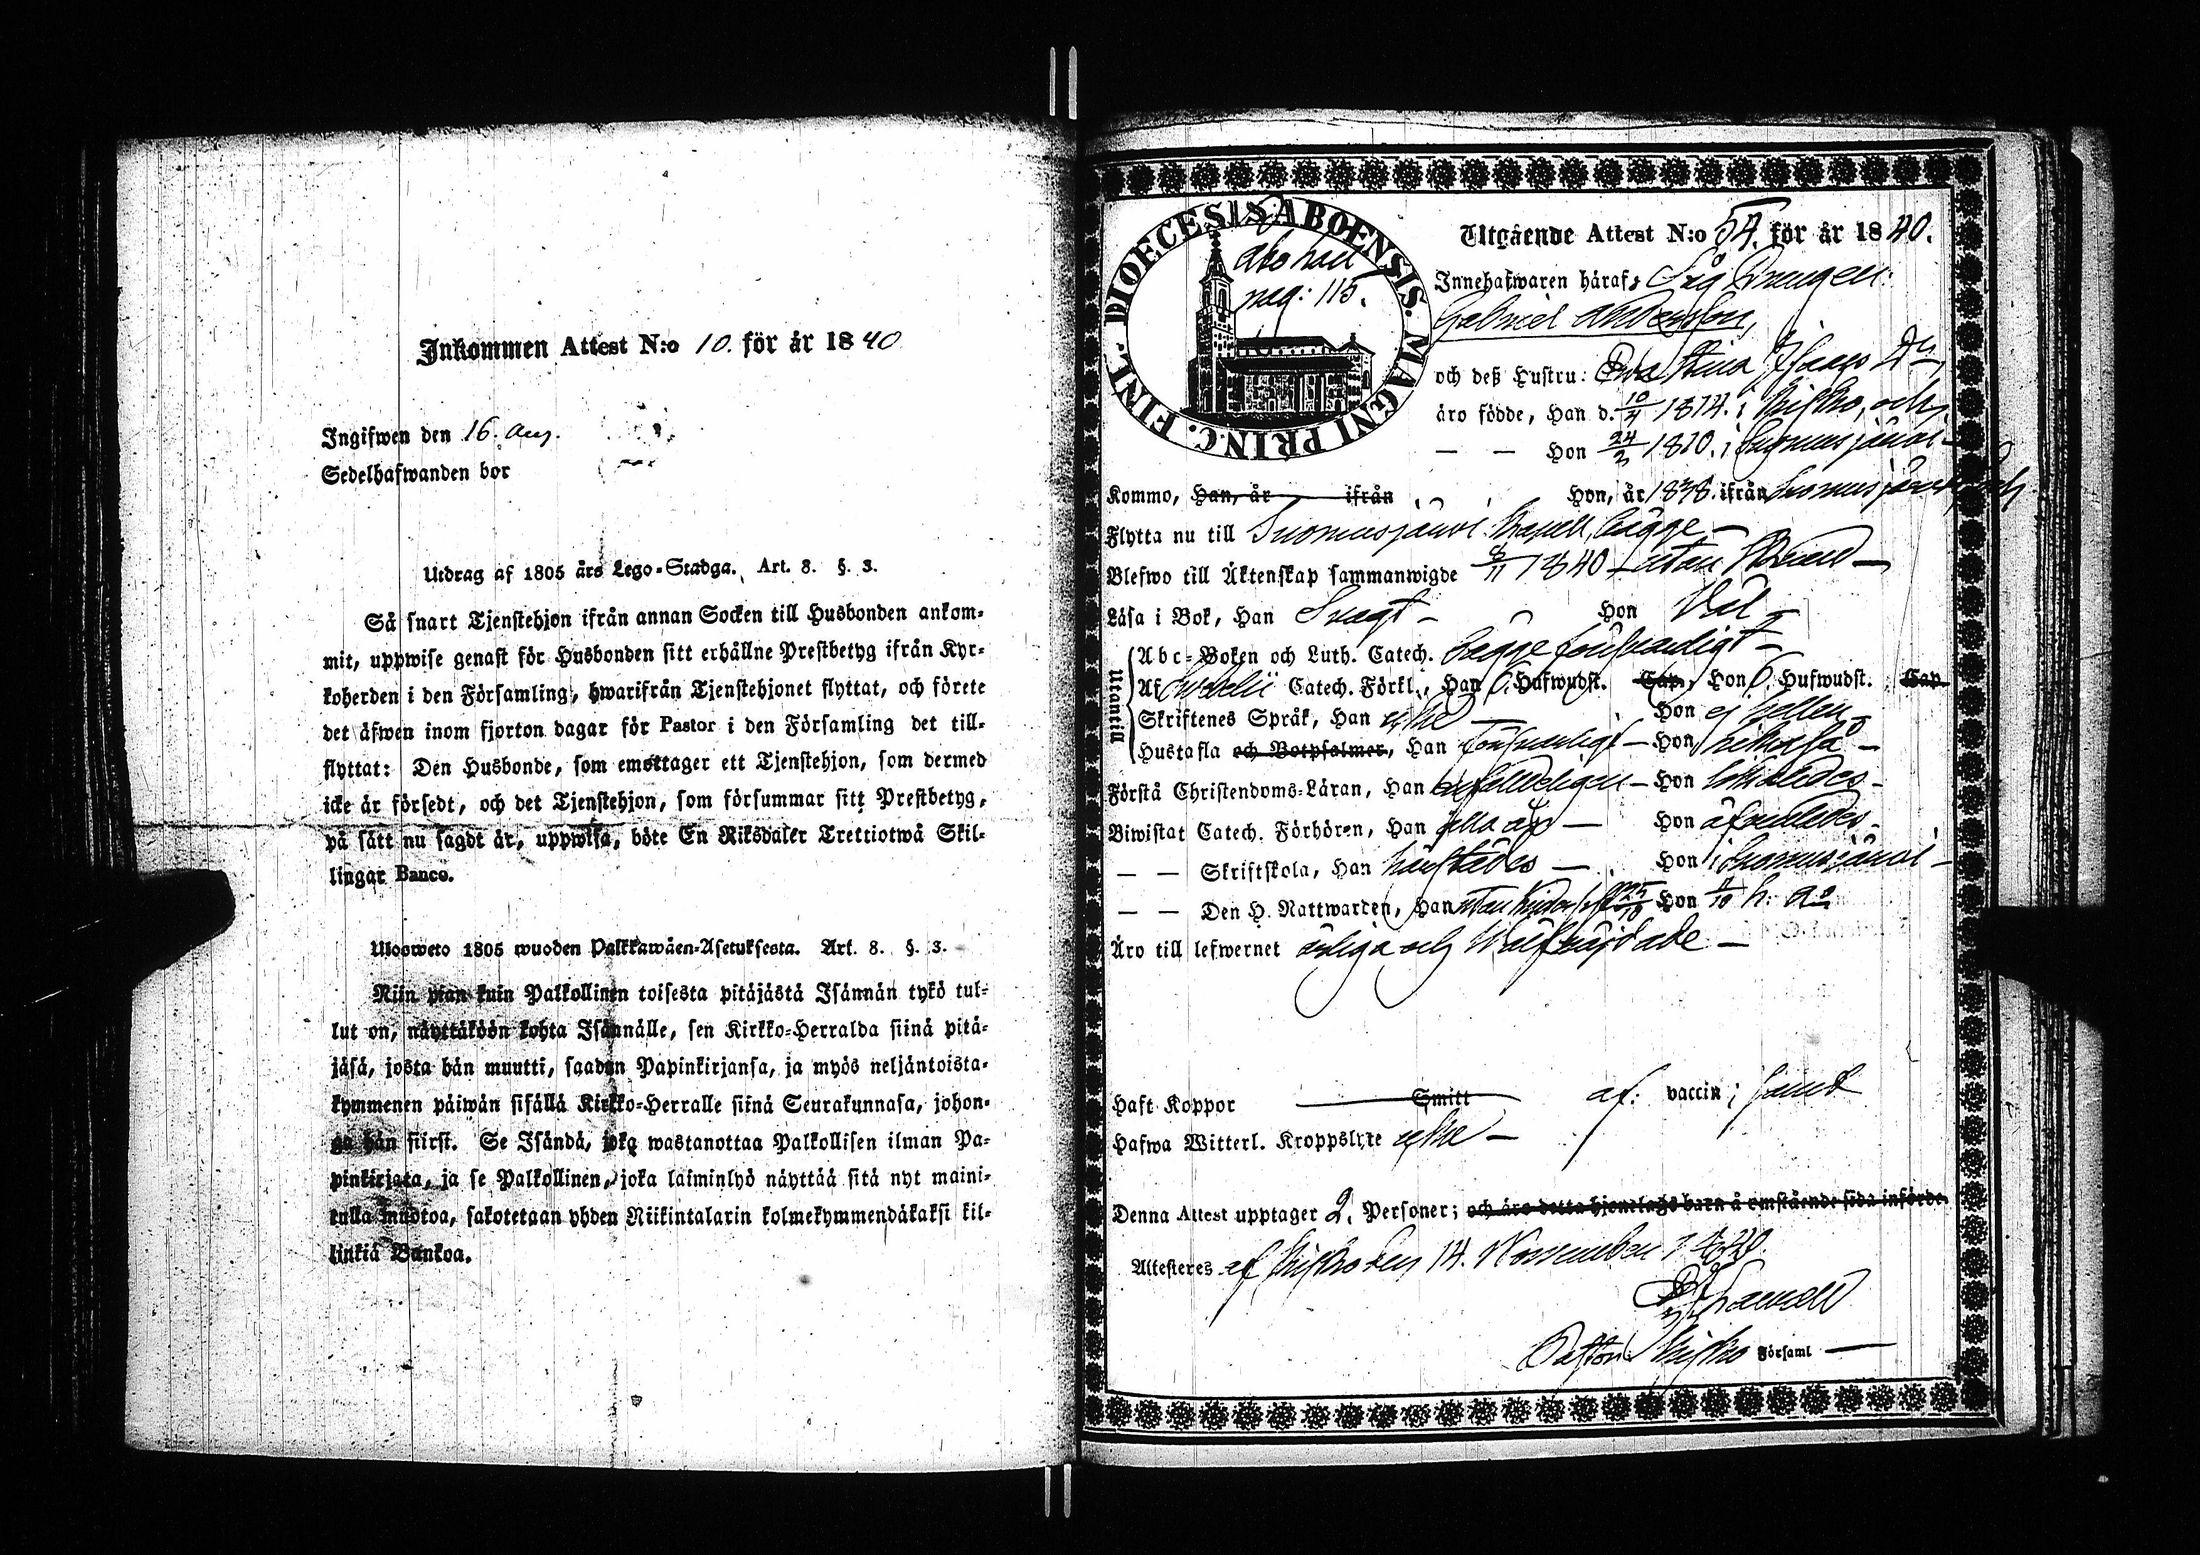 Inkommen Attest N:o 10. för år 1840
Ingifwen den 16. Aug.
Sedelhafwanden bor
Utdrag af 1805 års Lego-Stadga. Art. 8. §. 3.
Så snart Tjenstehjon ifrån annan Socken till Husbonden ankom-
mit, uppwise genast för Husbonden sitt erhållne Prestbetyg ifrån Kyr-
koherden i den Församling, hwarifrån Tjenstehjonet flyttat, och förete
det äfwen inom fjorton dagar för Pastor i den Församling det till-
flyttat: Den Husbonde, som emottager ett Tjenstehjon, som dermed
icke är försedt, och det Tjenstehjon, som försummar sitt Prestbetyg,
på sätt nu sagdt är, uppwisa, böte En Riksdaler Trettiotwå Skil-
lingar Banco.
Ulosweto 1805 wuoden Palkkawäen-Asetuksesta. Art. 8. §. 3.
Niin pian kuin Palkollinen toisesta pitäjästä Isännän tykö tul-
lut on, näyttäköön kohta Isännälle, sen Kirkko-Herralda siinä pitä-
jäsä, josta hän muutti, saadun Papinkirjansa, ja myös neljäntoista-
kymmenen päiwän sisällä Kirkko-Herralle siinä Seurakunnasa, johon-
ga hän siirst. Se Isändä, joka wastanottaa Palkollisen ilman Pa-
pinkirjata, ja se Palkollinen, joka laiminlyö näyttää sitä nyt maini-
tulla muotoa, sakotetaan yhden Riikintalarin kolmekymmendäkaksi kil-
linkiä Bankoa.
DIOECESIS ABOENSIS. MAGNI PRINC. FINL.
pag: 115.
Utgående Attest N:o 54. för år 1840.
Innehafwaren häraf: Drengen
Gabriel Andersson,
och deß Hustru: Stina
äro födde, Han d. 10/4 1814. i Kisko, och
— — Hon 24/3 1810. i Suomusjärvi
Kommo, Han, år ifrån Hon, år 1838. ifrån Suomusjärvi
Flytta nu till Suomusjärvi Kapell, bägge
Blefwo till Äktenskap sammanwigde 8/11 1840
Läsa i Bok, Han Svagt Hon Väl
Utantill
Abc-Boken och Luth. Catech. bägge försvarligt
Af Svebelii Catech. Förkl., Han 6. Hufwudst. Cap. Hon 6. Hufwudst. Cap.
Skriftenes Språk, Han icke Hon ej heller
Hustafla och Botpsalmer, Han försvarligt Hon likaså
Förstå Christendoms-Läran, Han enfaldeligen Hon likaledes
Biwistat Catech. Förhören, Han alla år Hon äfvenledes
— — Skriftskola, Han härstädes Hon i Suomusjärvi
— — Den H. Nattwarden, Han 25/10 Hon 4/10 h: a:
Äro till lefwernet ärliga och välfrägdade
Haft Koppor Smitt af: vaccin; båda
Hafwa Witterl. Kroppslyte icke
Denna Attest upptager 2. Personer; och äro detta hjonelags barn å omstående sida införde.
Attesteres af Kisko den 14. November 1840.
Pastor i Kisko Församl